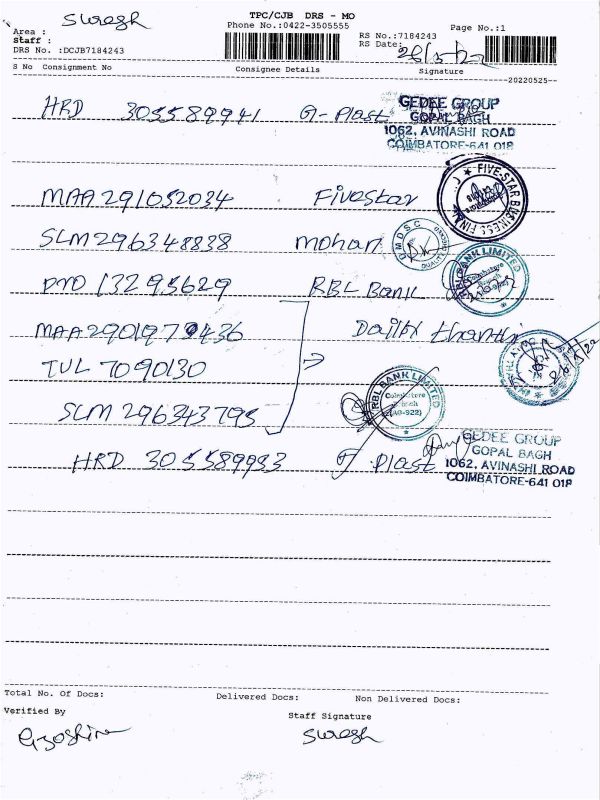 TPC/CJB DRS - MO
Suresh
Phone No.:0422-3505555
Page No.:1
Area :
Staff :
DRS No. :DCJB7184243
RS No.:7184243
RS Date:
26/5/22
S No Consignment No
Consignee Details
Signature
20220525
HRD 305589941 G-Plast
GEDEE GROUP
GOPAL BAGH
1062, AVINASHI ROAD
COIMBATORE-641 018
MAA 291052034 Fivestar
FIVE-STAR BUSINESS FINA
SLM 296348838 mohan
DMDSC
PNO 13295629 RBL Bank
RBL BANK LIMITED
Coimbatore
MAA 290197 436 Daily thanthi
TUL 7090130
SLM 296343795
RBL BANK LIMITED
Coimbatore
Branch
HRD 305589933 G Plast
GEDEE GROUP
GOPAL BAGH
1062, AVINASHI ROAD
COIMBATORE-641 018
Total No. Of Docs:
Delivered Docs:
Non Delivered Docs:
Verified By
Staff Signature
Suresh